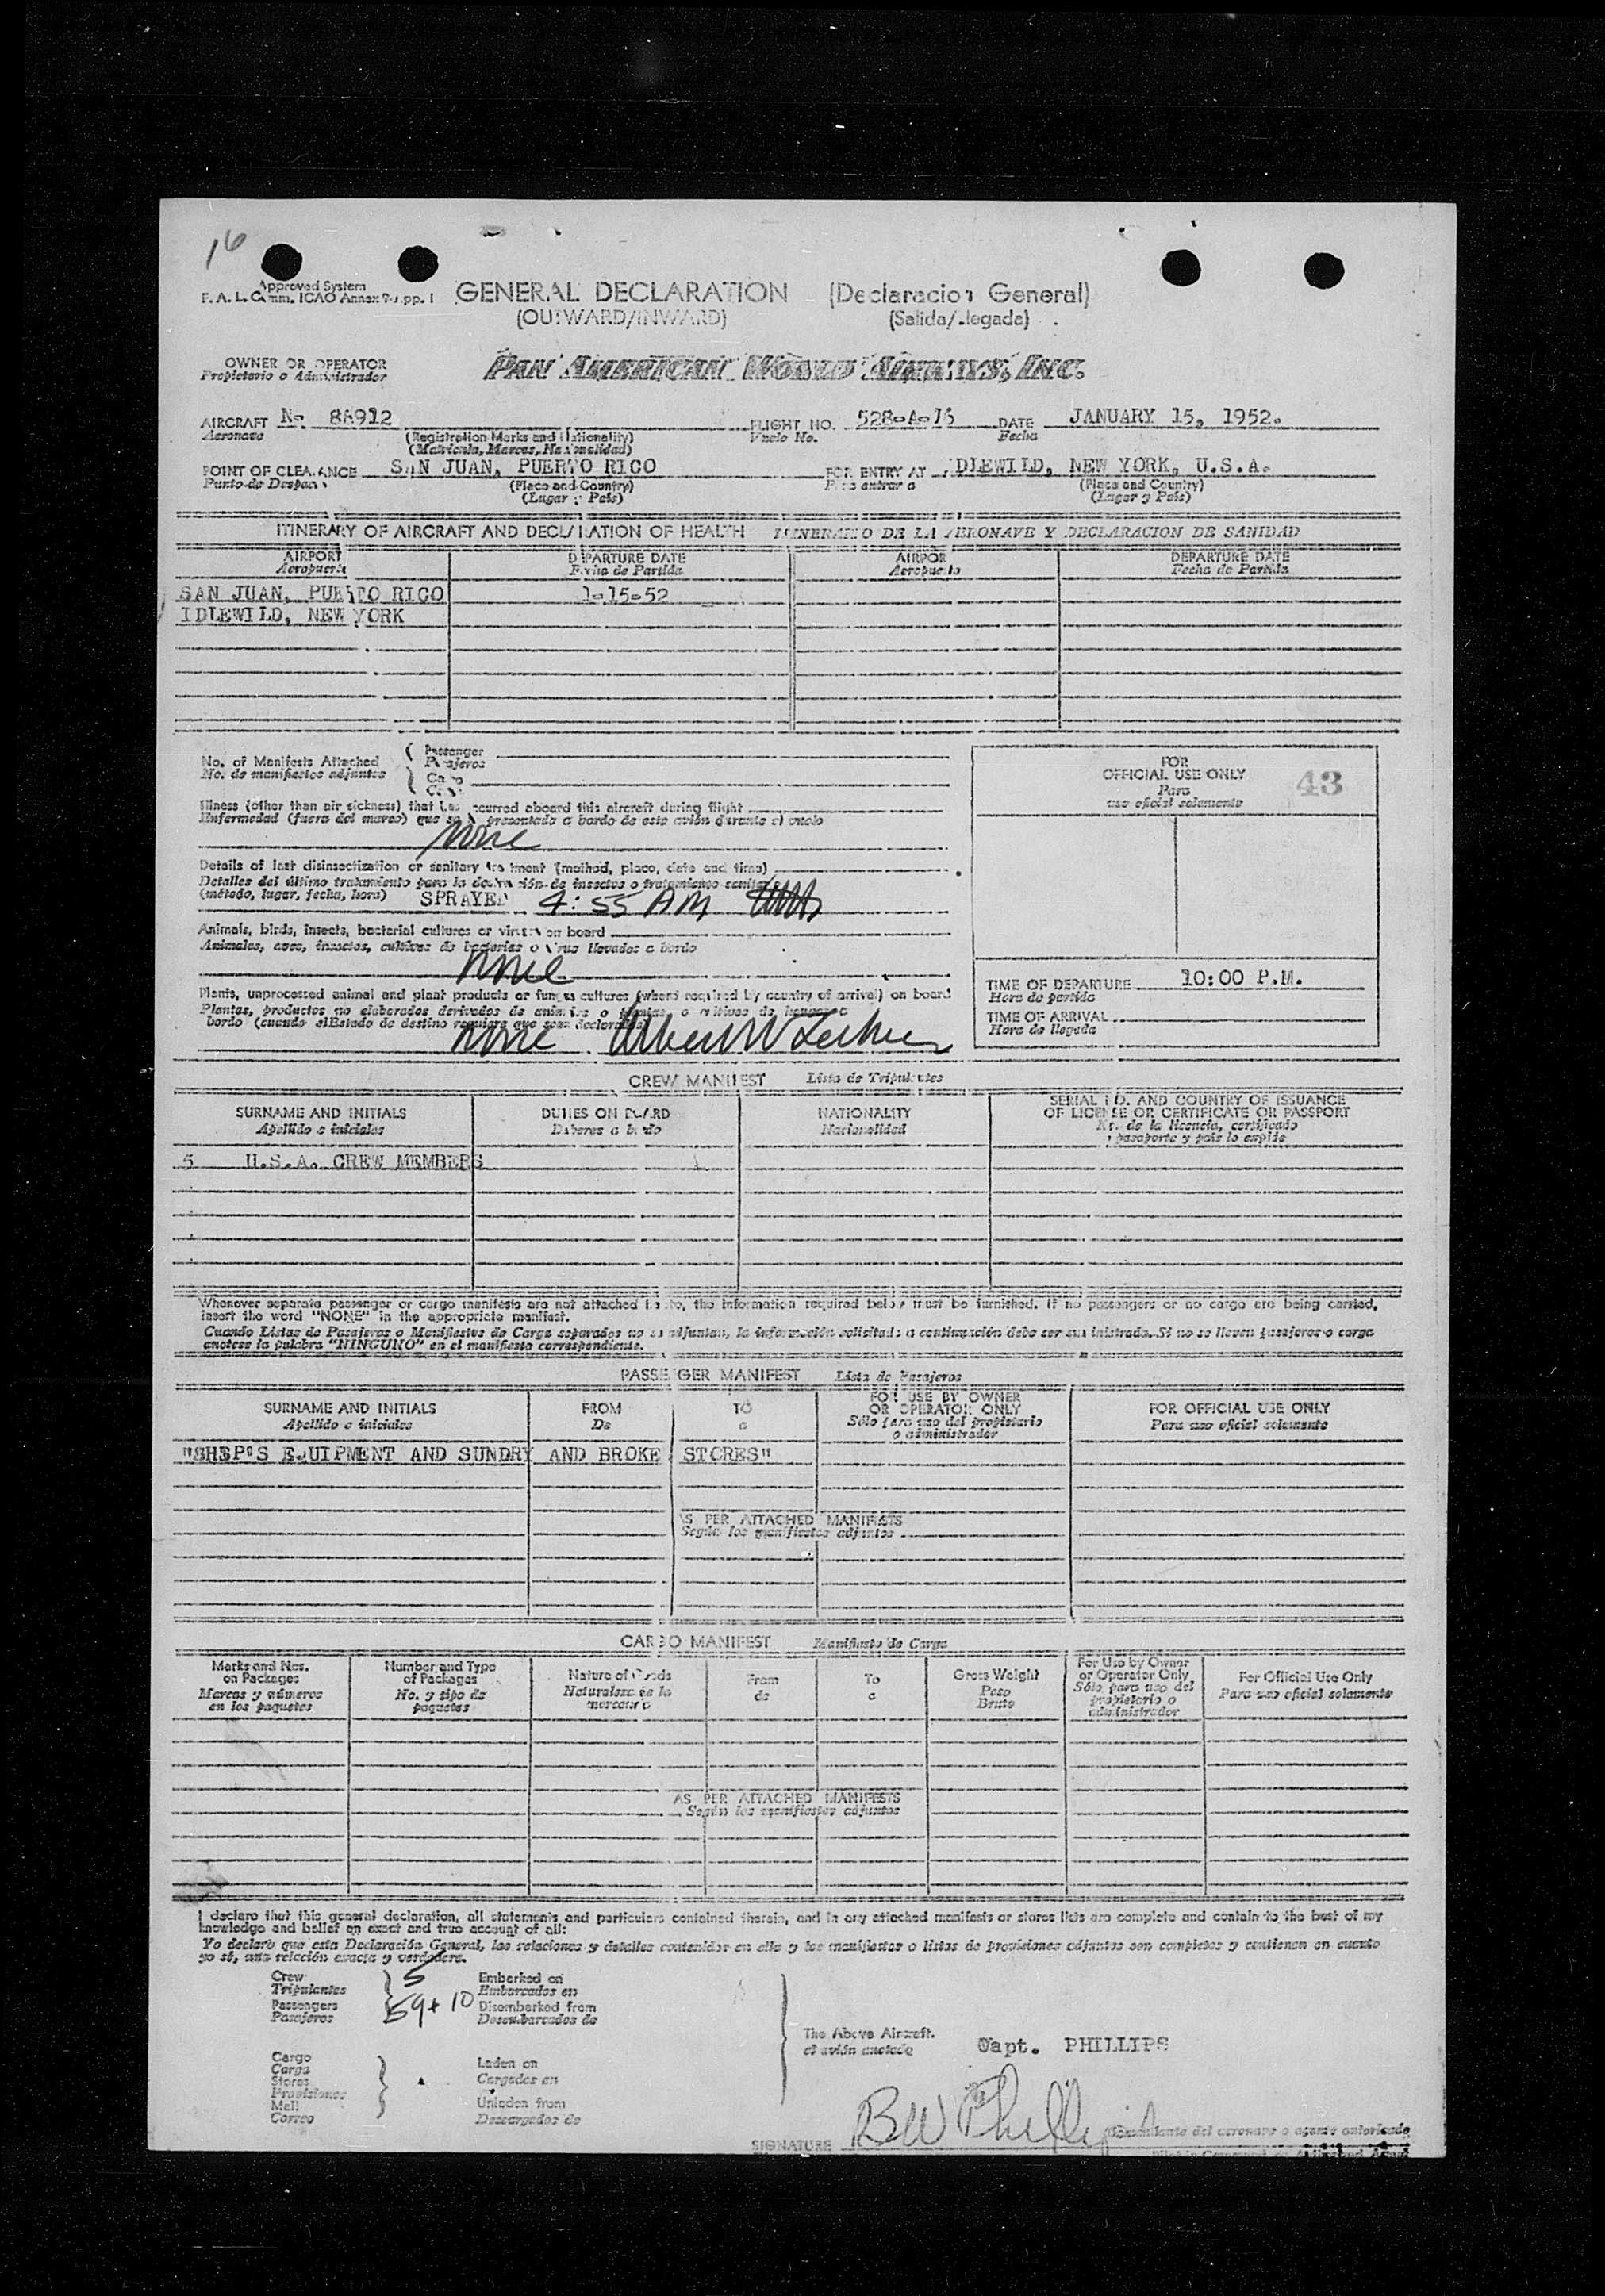 16
Approved System
F. A. L. Comm. ICAO Annex 9-App. 1
GENERAL DECLARATION (Declaracion General)
(OUTWARD/INWARD) (Salida/Llegada)
OWNER OR OPERATOR
Propietario o Administrador
PAN AMERICAN WORLD AIRWAYS, INC.
AIRCRAFT N- 88912 FLIGHT NO. 528-A-16 DATE JANUARY 15, 1952.
Aeronave (Registration Marks and Nationality) Vuelo No. Fecha
(Matricula, Marcas, Nacionalidad)
POINT OF CLEARANCE SAN JUAN, PUERTO RICO FOR ENTRY AT IDLEWILD, NEW YORK, U.S.A.
Punto de Despacho (Place and Country) Para entrar a (Place and Country)
(Lugar y Pais) (Lugar y Pais)
ITINERARY OF AIRCRAFT AND DECLARATION OF HEALTH ITINERARIO DE LA AERONAVE Y DECLARACION DE SANIDAD
AIRPORT DEPARTURE DATE AIRPORT DEPARTURE DATE
Aeropuerto Fecha de Partida Aeropuerto Fecha de Partida
SAN JUAN, PUERTO RICO 1-15-52
IDLEWILD, NEW YORK
No. of Manifests Attached Passenger
No. de manifiestos adjuntos Pasajeros
Cargo
Carga
Illness (other than air sickness) that has occurred aboard this aircraft during flight
Enfermedad (fuera del mareo) que se ha presentado a bordo de este avión durante el vuelo
none
Details of last disinsectization or sanitary treatment (method, place, date and time)
Detalles del último tratamiento para la destrucción de insectos o tratamiento sanitario
(método, lugar, fecha, hora) SPRAYED 4:55 AM
Animals, birds, insects, bacterial cultures or viruses on board
Animales, aves, insectos, cultivos de bacterias o virus llevados a bordo
none
Plants, unprocessed animal and plant products or fungus cultures (where required by country of arrival) on board
Plantas, productos no elaborados derivados de animales o plantas, o cultivos de hongos a
bordo (cuando el Estado de destino requiere que sean declarados)
none
FOR
OFFICIAL USE ONLY 43
Para
uso oficial solamente
TIME OF DEPARTURE 10:00 P.M.
Hora de partida
TIME OF ARRIVAL
Hora de llegada
CREW MANIFEST Lista de Tripulantes
SURNAME AND INITIALS DUTIES ON BOARD NATIONALITY SERIAL NO. AND COUNTRY OF ISSUANCE
OF LICENSE OR CERTIFICATE OR PASSPORT
Apellido e iniciales Deberes a bordo Nacionalidad No. de la licencia, certificado
o pasaporte y pais lo expide
5 U.S.A. CREW MEMBERS
Whenever separate passenger or cargo manifests are not attached hereto, the information required below must be furnished. If no passengers or no cargo are being carried,
insert the word "NONE" in the appropriate manifest.
Cuando Listas de Pasajeros o Manifiestos de Carga separados no se adjuntan, la información solicitada a continuación debe ser suministrada. Si no se lleven pasajeros o carga
anotese la palabra "NINGUNO" en el manifiesto correspondiente.
PASSENGER MANIFEST Lista de Pasajeros
SURNAME AND INITIALS FROM TO FOR USE BY OWNER
OR OPERATOR ONLY FOR OFFICIAL USE ONLY
Apellido e iniciales De a Sólo para uso del propietario
o administrador Para uso oficial solamente
"SHIP'S EQUIPMENT AND SUNDRY AND BROKE STORES"
AS PER ATTACHED MANIFESTS
Según los manifiestos adjuntos
CARGO MANIFEST Manifiesto de Carga
Marks and Nos.
on Packages
Marcas y números
en los paquetes
Number and Type
of Packages
No. y tipo de
paquetes
Nature of Goods
Naturaleza de la
mercancía
From
de
To
a
Gross Weight
Peso
Bruto
For Use by Owner
or Operator Only
Sólo para uso del
propietario o
administrador
For Official Use Only
Para uso oficial solamente
AS PER ATTACHED MANIFESTS
Según los manifiestos adjuntos
I declare that this general declaration, all statements and particulars contained therein, and in any attached manifests or stores lists are complete and contain to the best of my
knowledge and belief an exact and true account of all:
Yo declaro que esta Declaración General, las relaciones y detalles contenidos en ella y los manifiestos o listas de provisiones adjuntos son completos y contienen en cuanto
yo sé, una relación exacta y verdadera.
Crew 5 Embarked on
Tripulantes Embarcados en
Passengers 59+10 Disembarked from
Pasajeros Desembarcados de
The Above Aircraft.
el avión anotado
Capt. PHILLIPS
Cargo
Carga
Stores
Provisiones
Mail
Correo
Laden on
Cargados en
Unladen from
Descargados de
SIGNATURE BW Phillips
Comandante del aeronave o agente autorizado